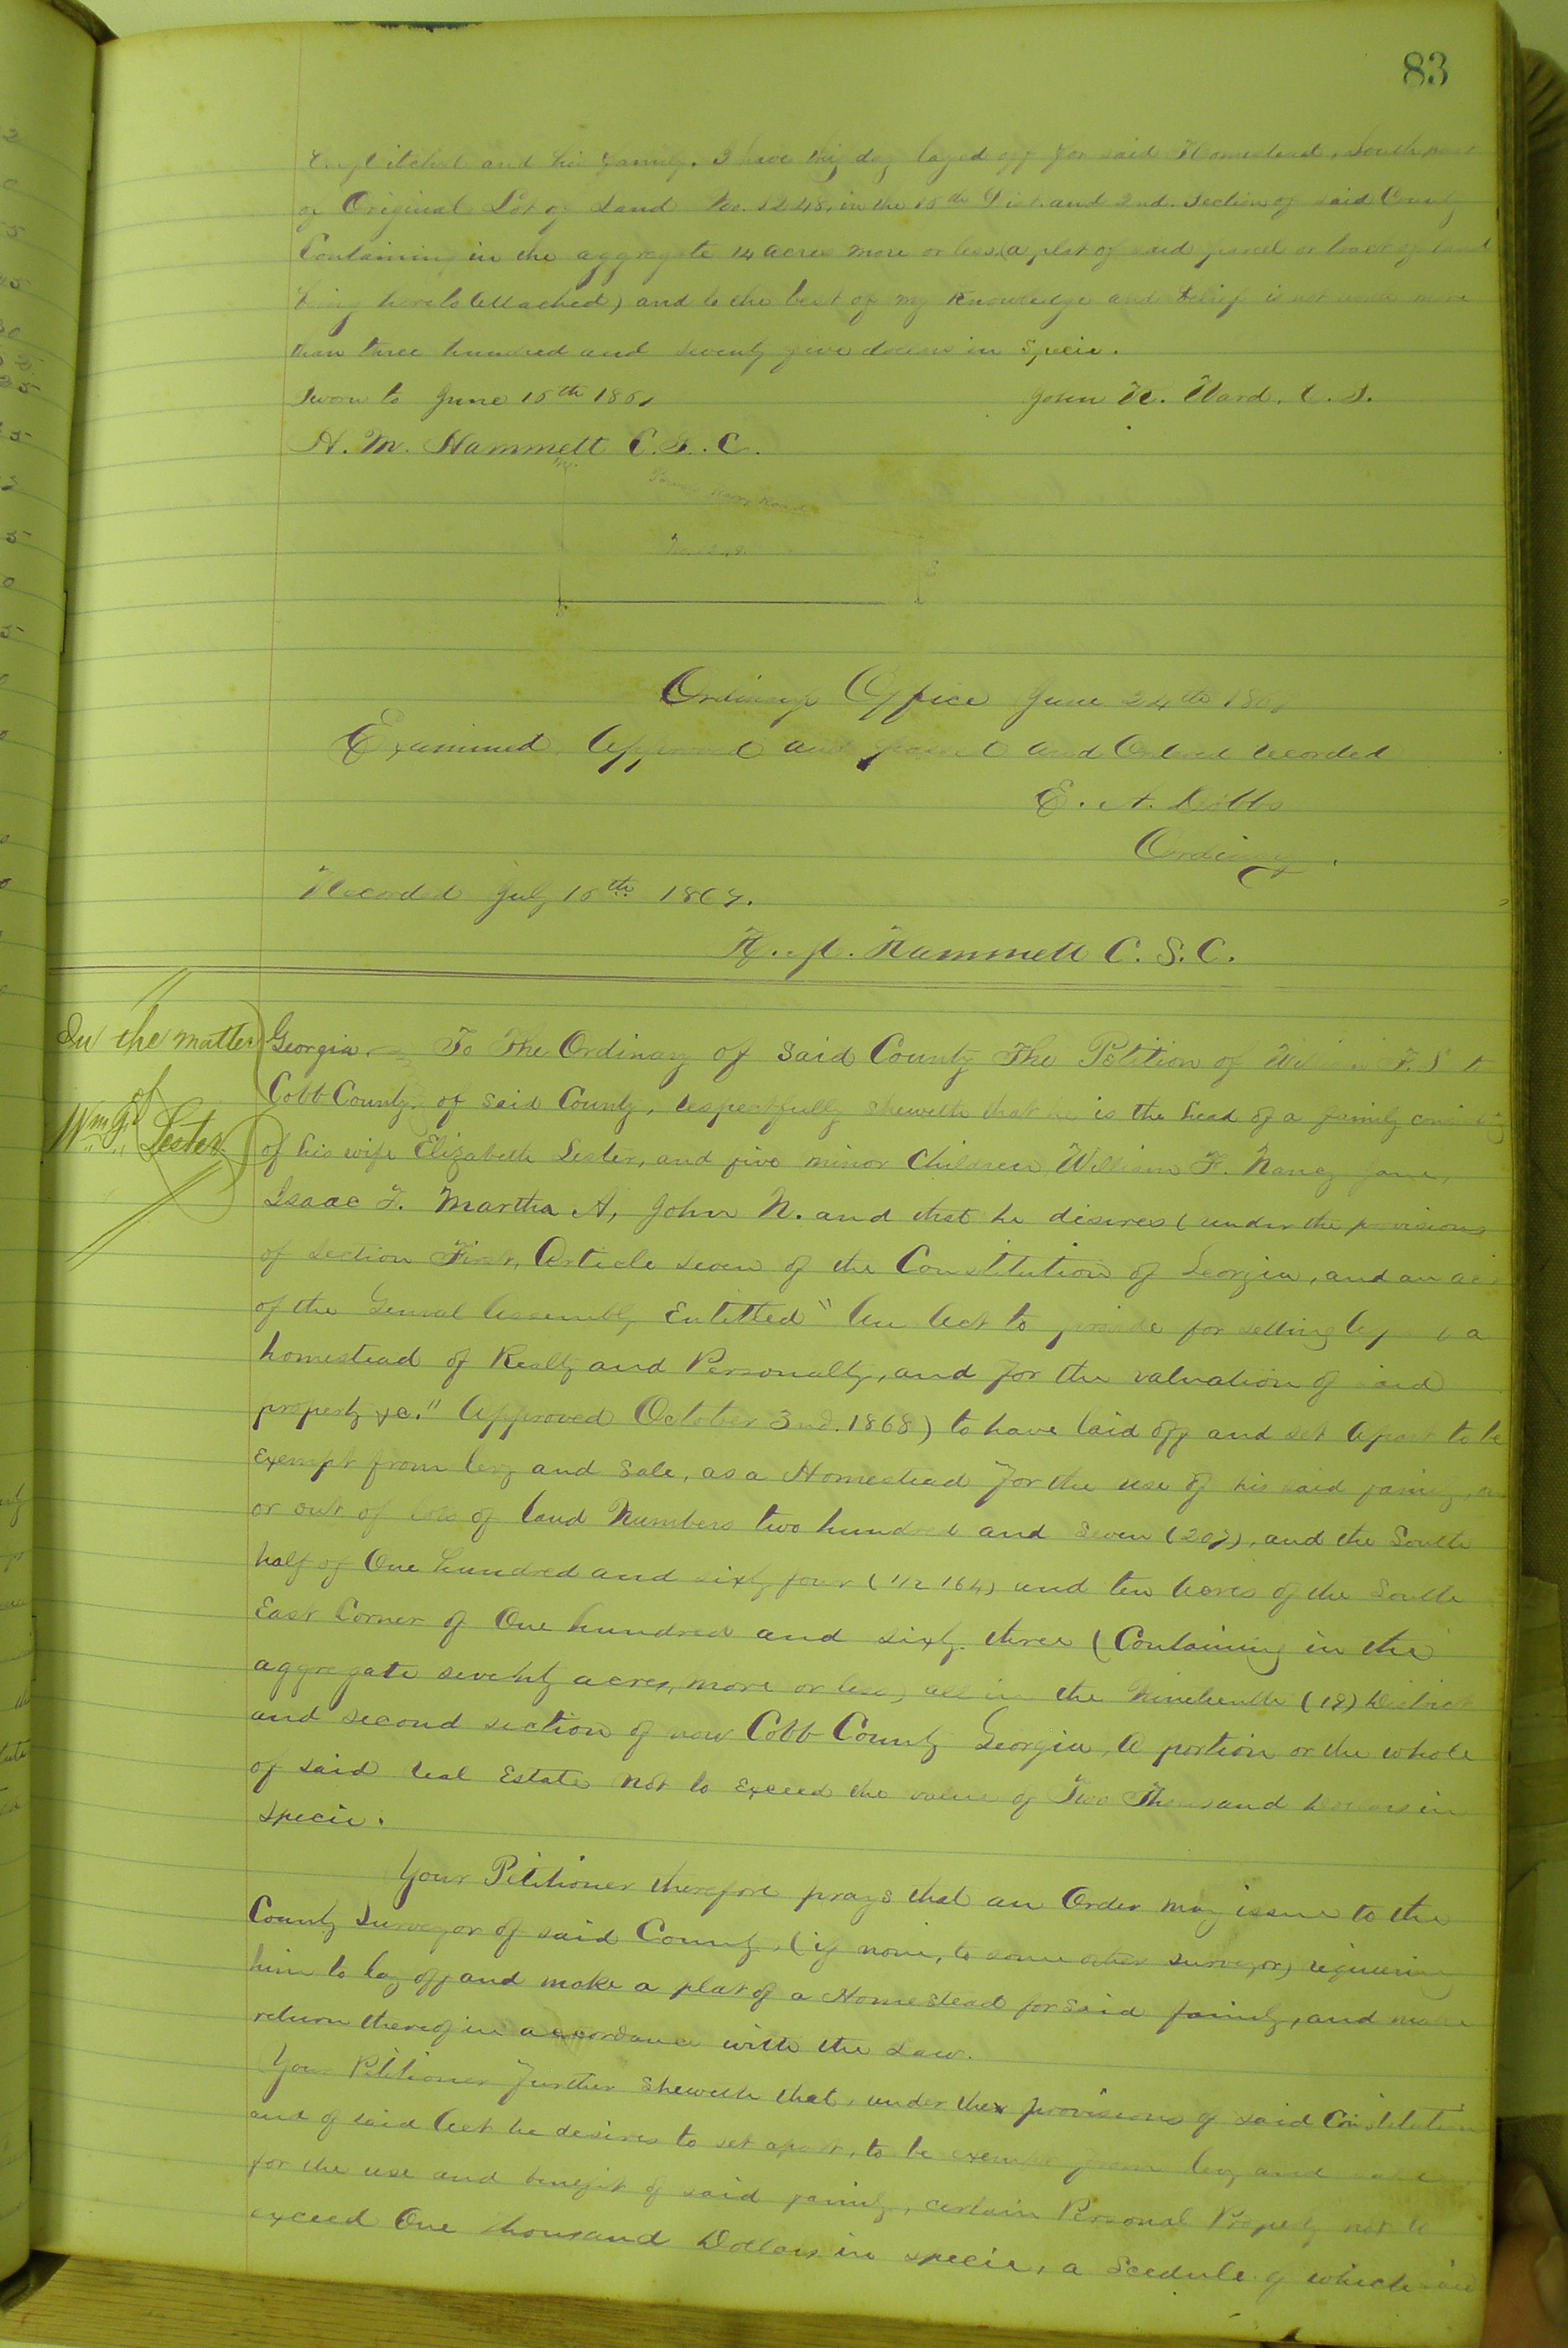 83
and his family. I have this day layed off for said Homestead, South part
of Original Lot of Land No. 1248, in the 16th Dist. and 2nd. Section of said County
Containing in the aggregate 14 acres more or less (a plat of said parcel or tract of land
being hereto attached) and to the best of my Knowledge and belief is not worth more
than three hundred and seventy five dollars in Specie.
Sworn to June 15th John Ward, C. S.
H. M. Hammett C. S. C.
Road
Ordinary Office June 24th
Examined, Approved and and Ordered recorded
E. A. Dobbs
Ordinary.
Recorded July 15th
Hammett C. S. C.
In the matter
of
Wm. Lester
Georgia To The Ordinary of Said County The Petition of William
Cobb County of Said County, respectfully sheweth that he is the head of a family consisting
of his wife Elizabeth Lester, and five minor Children, William F. Nancy Jane,
Isaac F. Martha A, John N. and that he desires (under the provisions
of Section First, Article seven of the Constitution of Georgia, and an act
of the General Assembly Entitled "An Act to provide for setting apart a
homestead of Realty and Personalty, and for the valuation of said
property &c." Approved October 3nd. 1868) to have laid off and set apart to be
exempt from levy and sale, as a Homestead for the use of his said family,
or out of lots of land Numbers two hundred and seven (207), and the South
half of One hundred and sixty four (1/2 164) and ten acres of the South
East Corner of One hundred and sixty three (Containing in the
aggregate seventy acres, more or less, all in the Nineteenth (19) District
and second section of now Cobb County Georgia, A portion or the whole
of said real Estate not to exceed the value of Two Thousand Dollars in
specie.
Your Petitioner therefore prays that an Order may issue to the
County Surveyor of said County, (if none, to some other surveyor) requiring
him to lay off and make a plat of a Homestead for said family, and make
return thereof in accordance with the Law.
Your Petitioner further sheweth that, under the provisions of said Constitution
and of said Act he desires to set apart, to be exempt from levy and sale
for the use and benefit of said family, certain Personal Property not to
exceed One thousand Dollars in specie, a Scedule of which